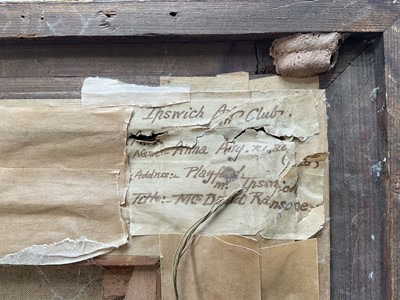 Ipswich Art Club.
Name:- Anna Airy. R.I., R.O.I.
Address:- Playford
nr Ipswich
Title:- Mrs David Ransome